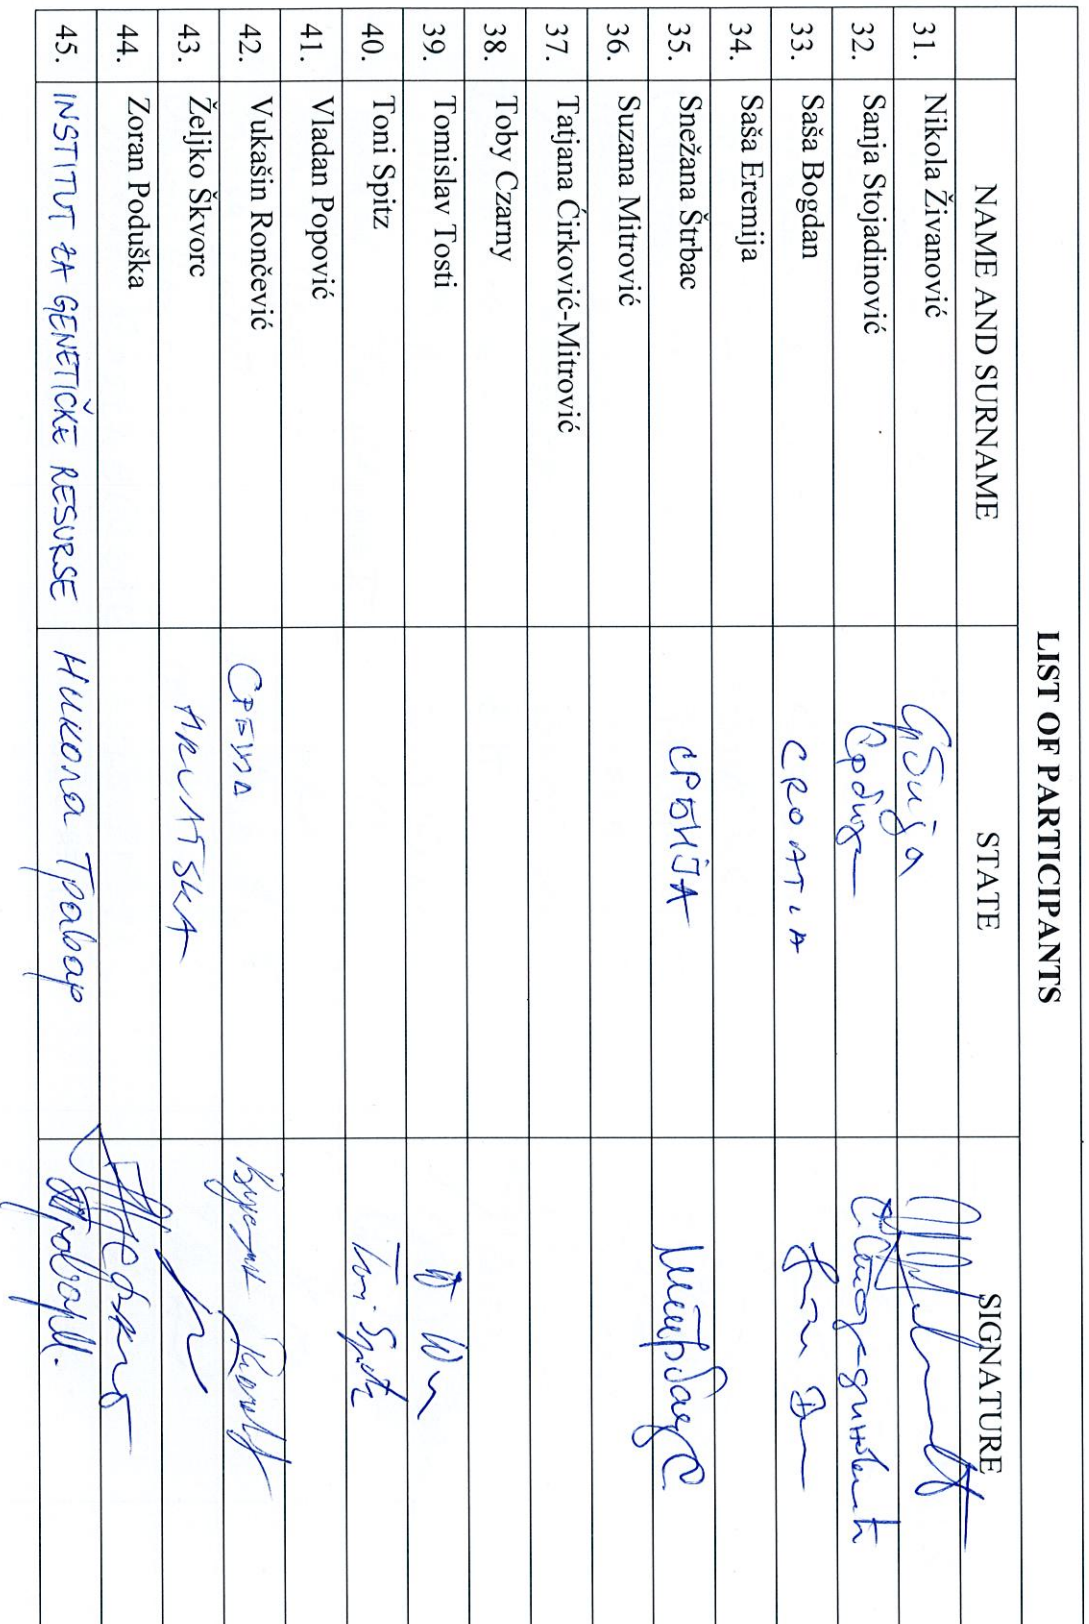 LIST OF PARTICIPANTS
NAME AND SURNAME STATE SIGNATURE
31. Nikola Živanović Србија
32. Sanja Stojadinović Србија
33. Saša Bogdan CROATIA
34. Saša Eremija
35. Snežana Štrbac СРБИЈА Штрбац С
36. Suzana Mitrović
37. Tatjana Ćirković-Mitrović
38. Toby Czarny
39. Tomislav Tosti
40. Toni Spitz Toni Spitz
41. Vladan Popović
42. Vukašin Rončević
43. Željko Škvorc
44. Zoran Poduška
45. INSTITUT ZA GENETIČKE RESURSE Никола Травар